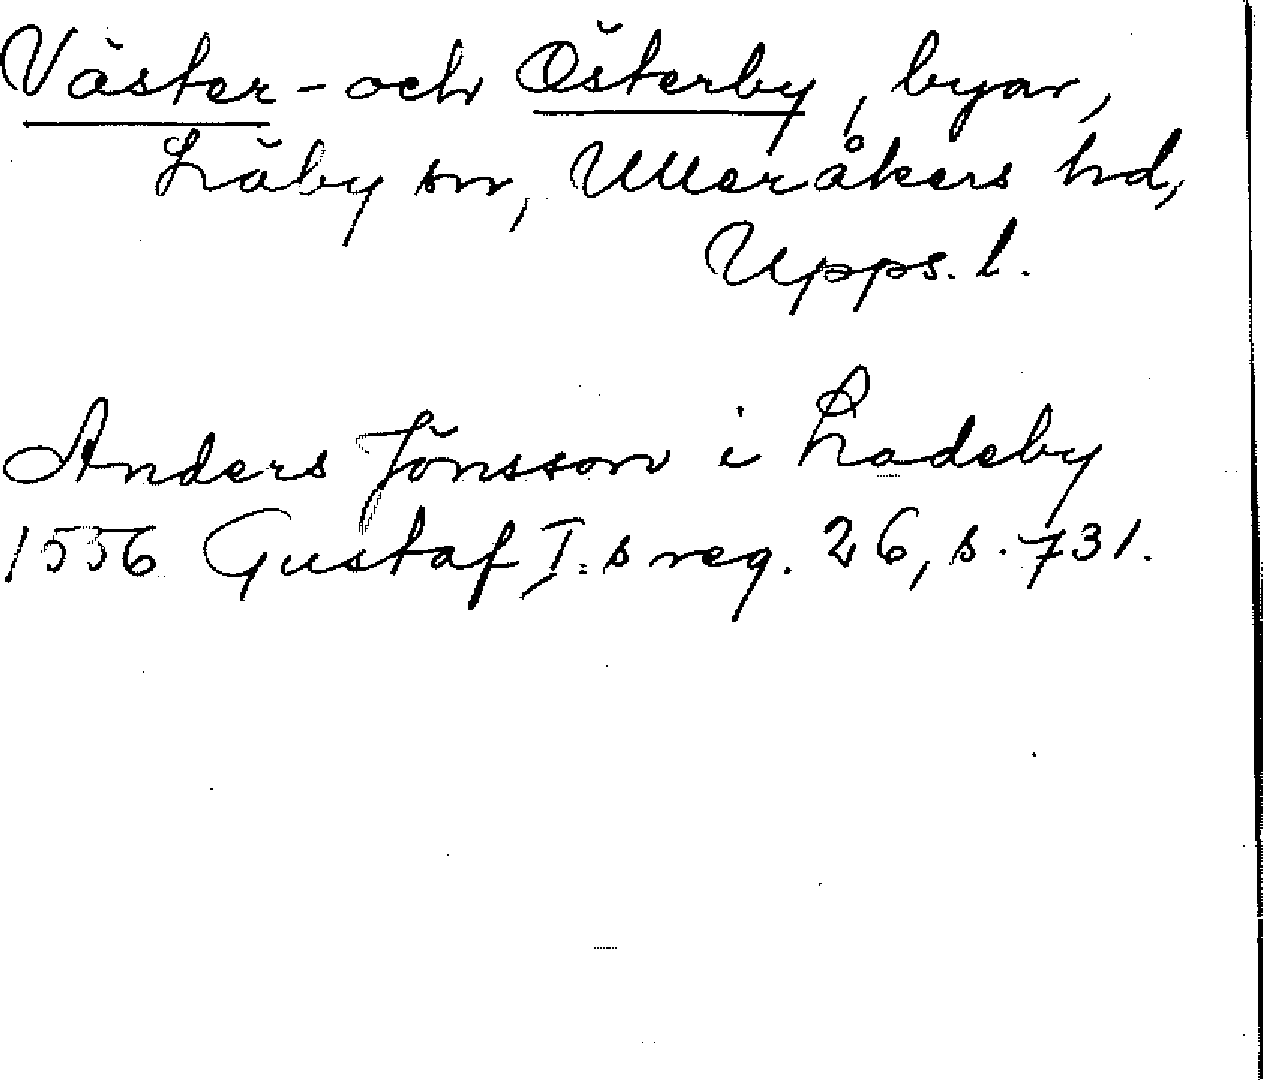 Väster- och Österby, byar,
Läby sn, Ulleråkers hd,
Upps. l.
Anders Jönsson i Ladeby
1556 Gustaf I:s reg. 26, s. 731.